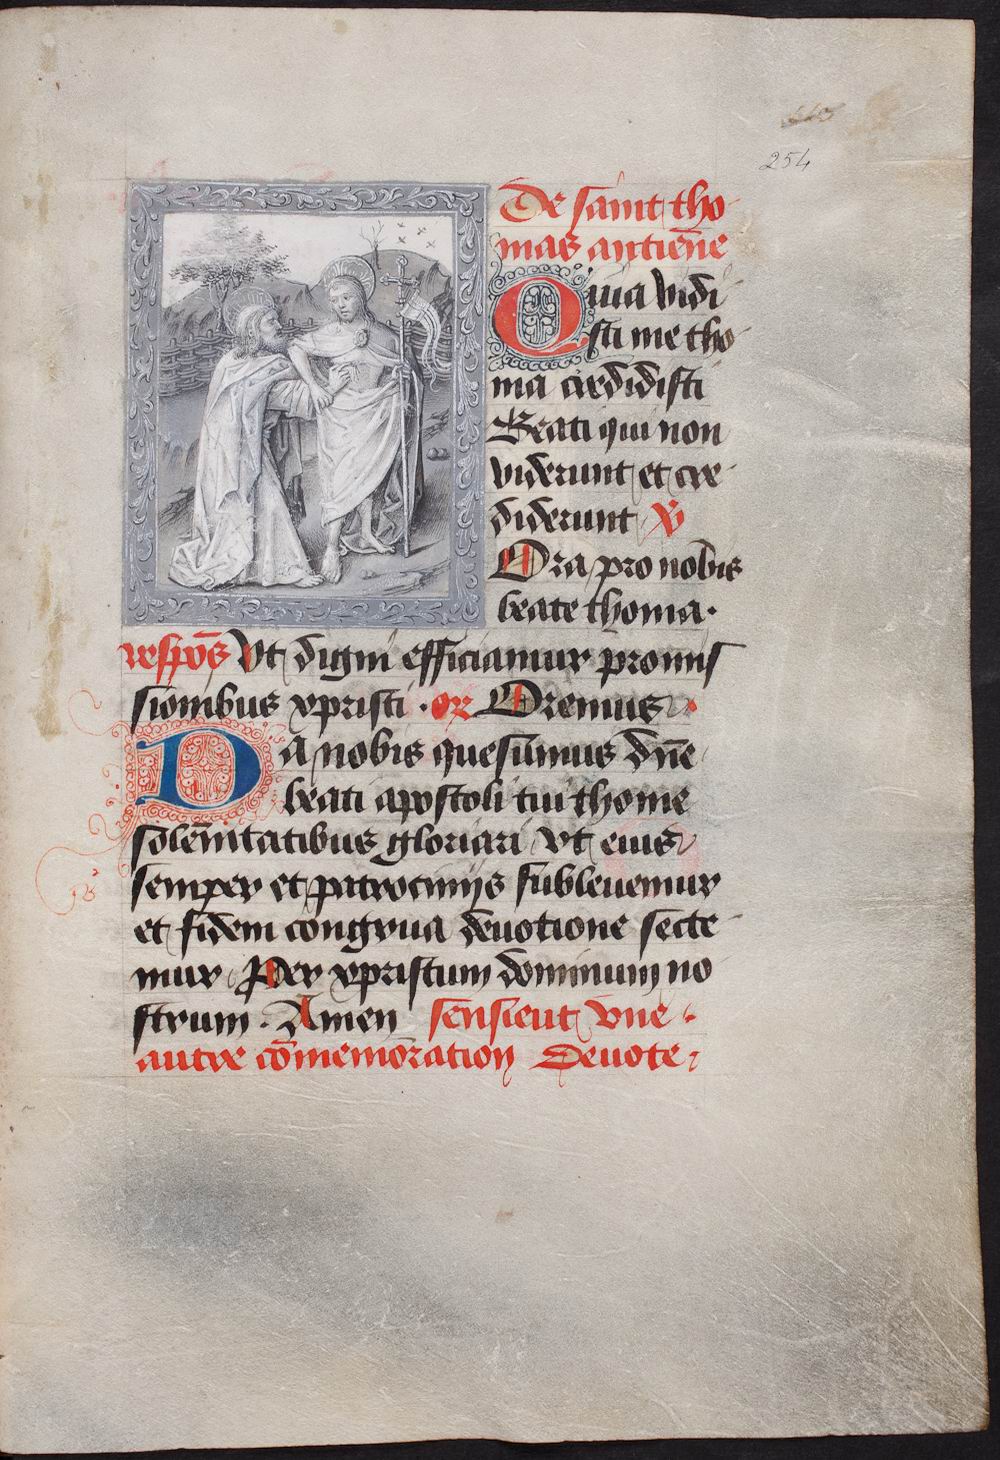 254
De saint tho
mas antiēne
Quia vidi
sti me tho
ma credidisti
Beati qui non
viderunt et cre
diderunt v̄
Ora pro nobis
beate thoma.
respōs Vt digni efficiamur promis
sionibus xpristi . or Oremus
Da nobis quesumus dn̄e
beati apostoli tui thome
solēnitatibus gloriari vt eius
semper et patrocinijs subleuemur
et fidem congrua deuotione secte
mur . Per xpristum dominum no
strum . Amen sensieut vne
autre cōmemoration Deuote